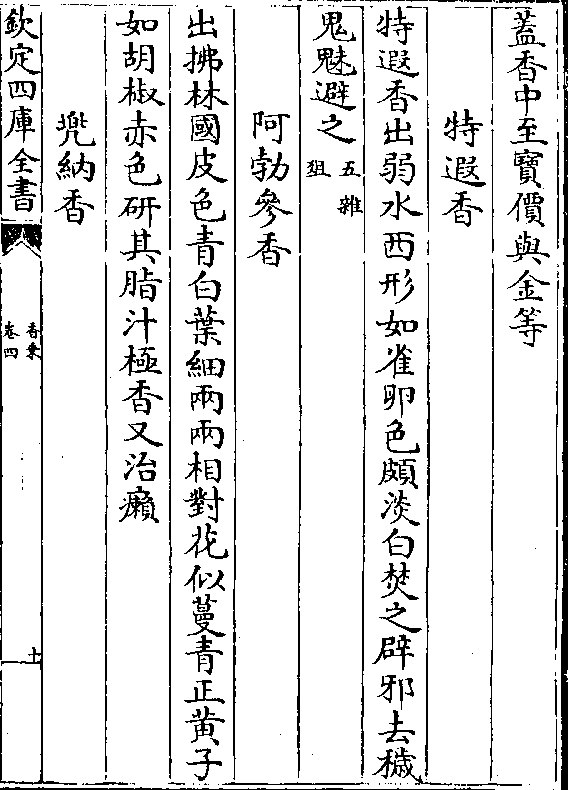 蓋香中至寶價與金等
特遐香
特遐香出弱水西形如雀卵色頗淡白焚之辟邪去穢
鬼魅避之五雜
狙
阿勃參香
出拂林國皮色青白葉細兩兩相對花似蔓青正黃子
如胡椒赤色研其脂汁極香又治癩
兜納香
欽定四庫全書
香乘
卷四
十